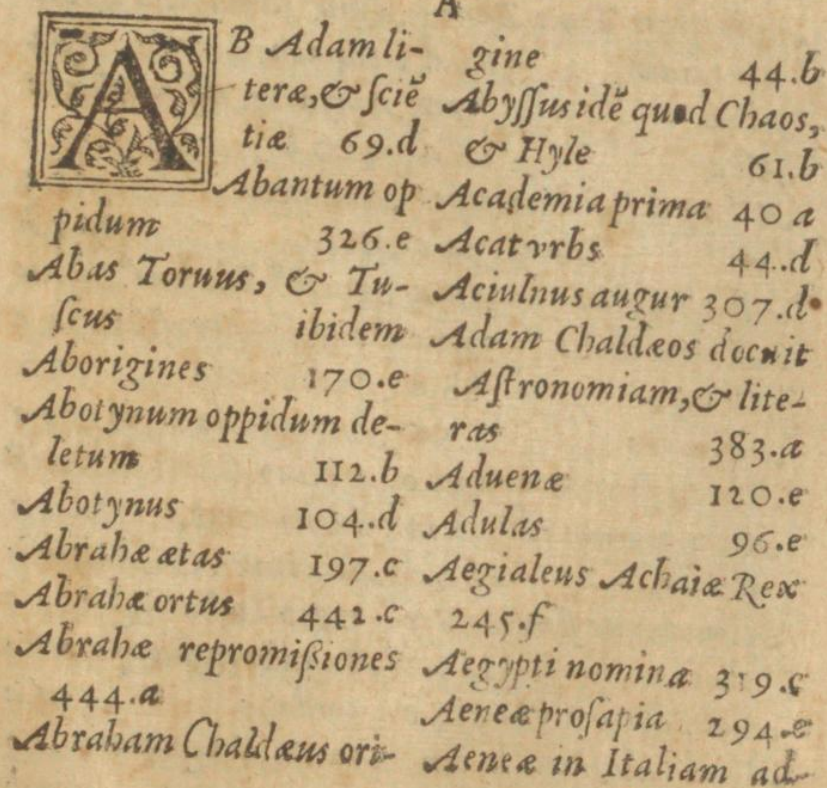 A
AB Adam li-
teræ, & ſciẽ
tiæ 69.d
Abantum op
pidum 326.e
Abas Toruus, & Tu-
ſcus ibidem
Aborigines 170.e
Abotynum oppidum de-
letum 112.b
Abotynus 104.d
Abrahæ ætas 197.c
Abrahæ ortus 442.c
Abrahæ repromiſsiones
444.a
Abraham Chaldæus ori-
gine 44.b
Abyſſus idẽ quod Chaos,
& Hyle 61.b
Academia prima 40 a
Acat vrbs 44.d
Aciulnus augur 307.d
Adam Chaldæos docuit
Aſtronomiam, & lite-
ras 383.a
Aduenæ 120.e
Adulas 96.e
Aegialeus Achaiæ Rex
245.f
Aegypti nomina 319.c
Aeneæ proſapia 294.e
Aeneæ in Italiam ad-